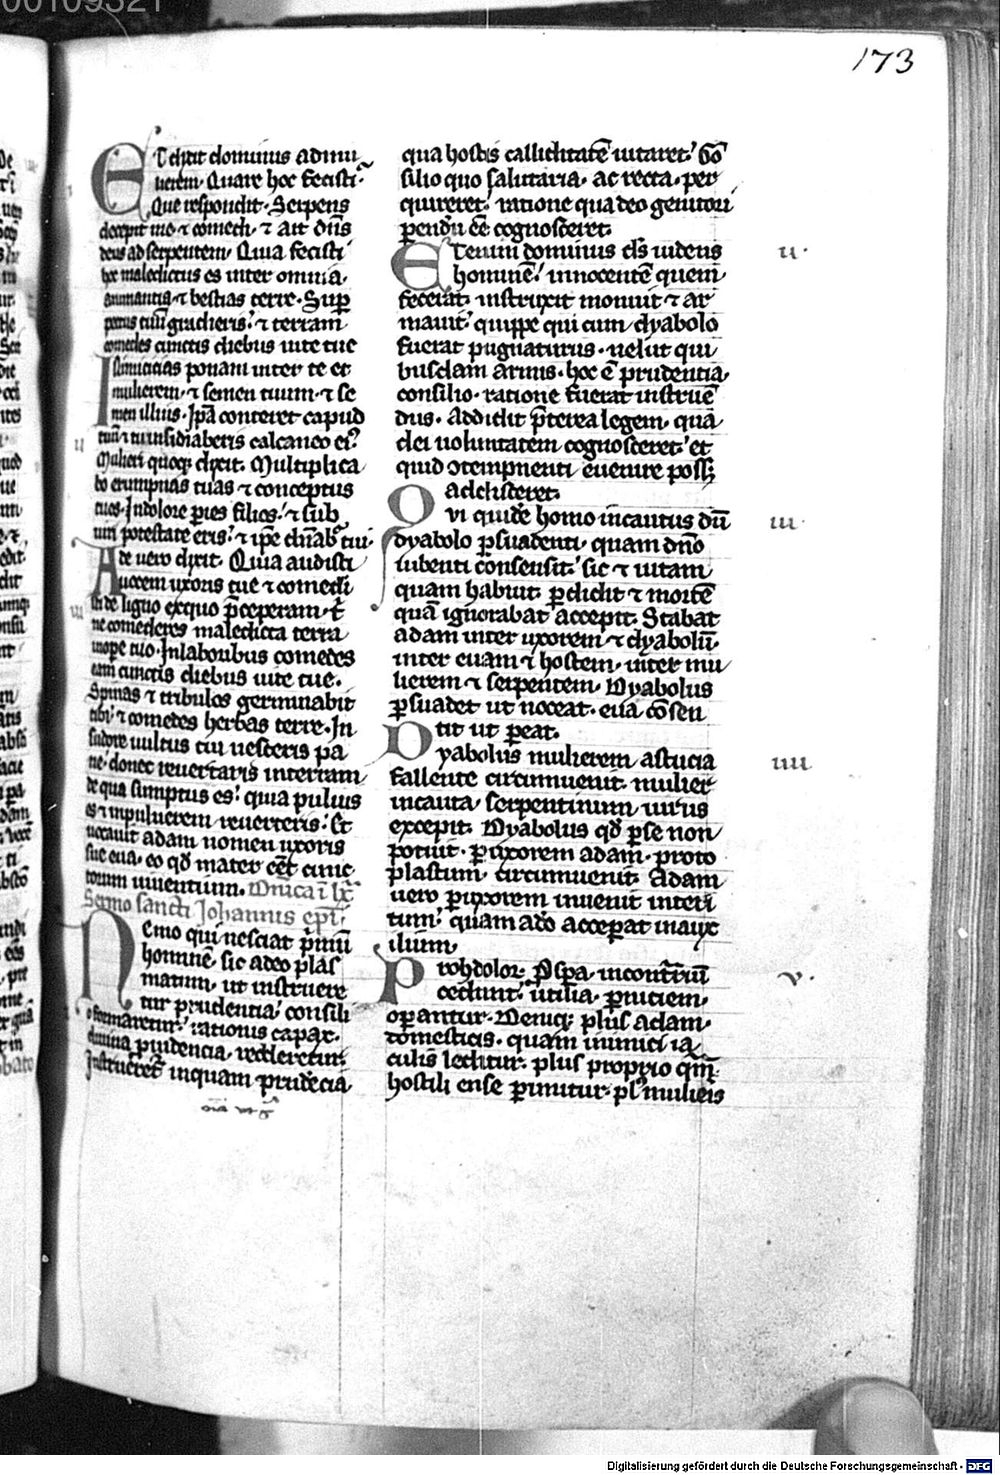 00109321
173
Et dixit dominus ad mu
lierem. Quare hoc fecisti.
Que respondit. Serpens
decepit me ⁊ comedi. ⁊ ait dñs
deus ad serpentem. Quia fecisti
hoc maledictus es inter omnia
animantia ⁊ bestias terre. Sup̄
pectus tuū gradieris. ⁊ terram
comedes cunctis diebus uite tue
Inimicicias ponam inter te et
mulierem. ⁊ semen tuum. ⁊ se
men illius. Ip̄a conteret capud
tuū ⁊ tu insidiaberis calcaneo eiꝰ
Mulieri quoqꝫ dixit. Multiplica
bo erumpnas tuas ⁊ conceptus
tuos. In dolore paries filios. ⁊ sub
uiri potestate eris. ⁊ ip̄e dn̄abit᷑ tui.
Ade uero dixit. Quia audisti
uocem uxoris tue ⁊ comedi
sti de ligno ex quo p̄ceperam t̄
ne comederes maledicta terra
in ope tuo. In laboribus comedes
eam cunctis diebus uite tue.
Spinas ⁊ tribulos germinabit
tibi. ⁊ comedes herbas terre. In
sudore uultus tui uesceris pa
ne. donec reuertaris in terram
de qua sumptus es. quia puluis
es ⁊ in puluerem reuerteris. Et
uocauit adam nomen uxoris
sue eua. eo qđ mater eēt cunc
torum uiuentium. Dn̄ica ī lxͣ
Sermo sancti Johannis ep̄i.
Nemo qui nesciat p̄mū
hominē. sic a deo plas
matum. ut instruere
tur prudentia. consili
o formaretur. rationis capax.
diuina prudencia. redderetur.
Instrueret᷑ inquam prudēcia
qua hostis calliditatē uitaret. Cō
silio quo salutaria. ac recta. per
quireret. ratione qua deo genitori
pendū eē cognosceret.
Etenim dominus dꝰ uidens
hominē innocentē quem
fecerat. instruxit monuit ⁊ ar
mauit. quippe qui cum dyabolo
fuerat pugnaturus. uelut qui
busdam armis. hoc ē prudentia.
consilio. ratione fuerat instruē
dus. Addidit p̄terea legem. qua
dei uoluntatem cognosceret. et
quid ꝯtempnenti euenire poss;
addisceret.
Qui quidē homo incautus dū
dyabolo p̱suadenti. quam dn̄o
iubenti consensit. sic ⁊ uitam
quam habuit p̱didit ⁊ mortē
quā ignorabat accepit. Stabat
adam inter uxorem ⁊ dyabolū.
inter euam ⁊ hostem. inter mu
lierem ⁊ serpentem. Dyabolus
p̱suadet ut noceat. eua cōsen
tit ut p̱eat.
Dyabolus mulierem astucia
fallente circumuenit. mulier
incauta serpentinum uirus
excepit. Dyabolus qđ p̱ se non
potuit. p̱ uxorem adam. proto
plastum. circumuenit. Adam
uero p̱ uxorem inuenit interi
tum. quam ad accep̱at in auxi
lium.
Proh dolor. Prosp̱a in contrariū
cedunt. utilia. p̱niciem.
op̱antur. Deniqꝫ plus adam
domesticis. quam inimici ia
culis leditur. plus proprio qm̄
hostili ense p̱imitur. plꝰ mulieris
ii
iii
ii.
iii.
iiii
v.
Digitalisierung gefördert durch die Deutsche Forschungsgemeinschaft - DFG